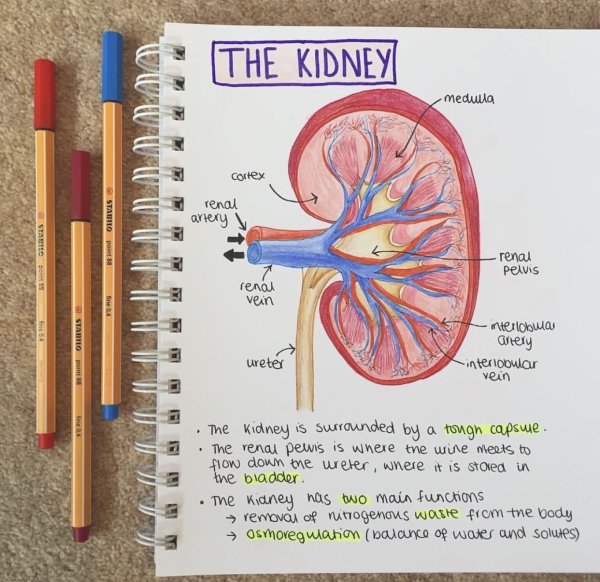 THE KIDNEY
medulla
cortex
renal
artery
renal
pelvis
renal
vein
interlobular
artery
interlobular
vein
ureter
• The Kidney is surrounded by a tough capsule.
• The renal pelvis is where the urine meets to
flow down the ureter, where it is stored in
the bladder.
• The Kidney has two main functions
→ removal of nitrogenous waste from the body
→ osmoregulation (balance of water and solutes)
STABILO
point 88
fine 0,4
STABILO
point 88
fine 0,4
STABILO
point 88
fine 0,4